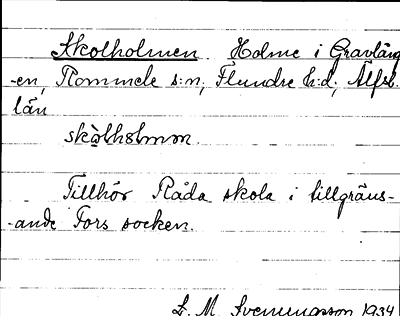 Skolholmen Holme i Gravlång
-en, Rommele s:n, Flundre h:d, Älfsb.
län
skòlhòlmon.
Tillhör Råda skola i tillgräns-
-ande Fors socken.
L. M. Svenungsson 1934